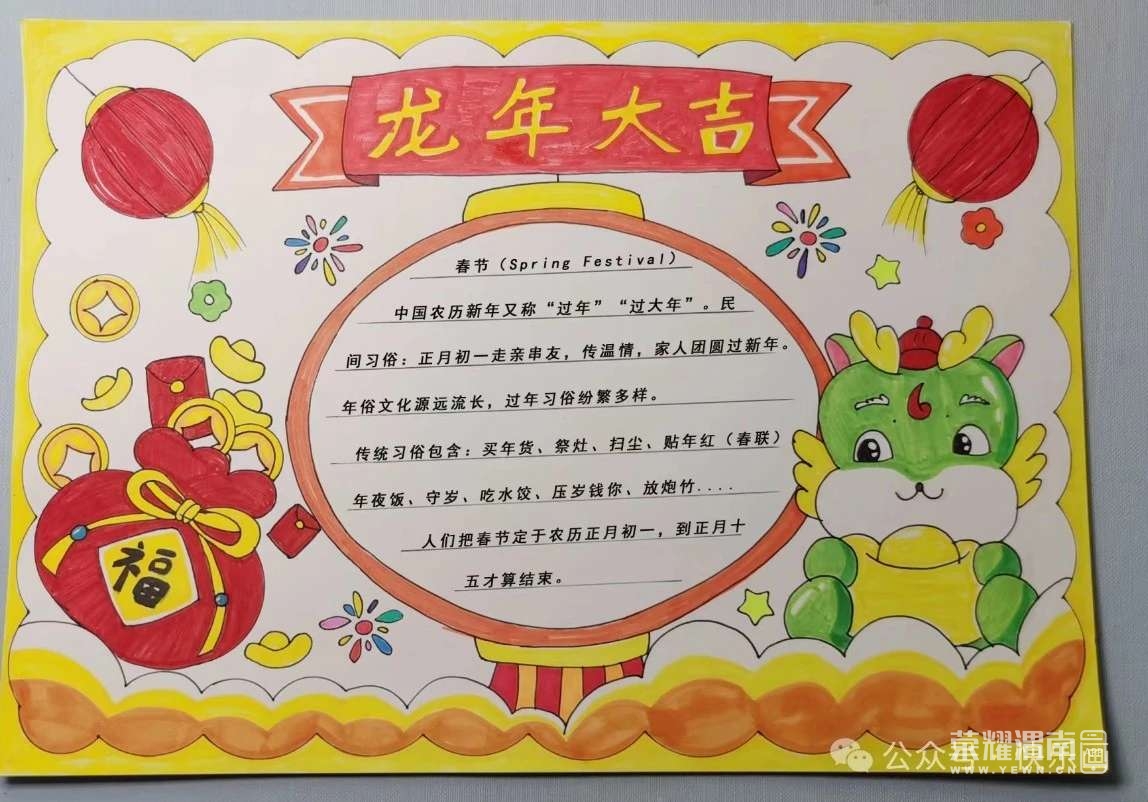 龙年大吉
春节（Spring Festival）
中国农历新年又称“过年”“过大年”。民
间习俗：正月初一走亲串友，传温情，家人团圆过新年。
年俗文化源远流长，过年习俗纷繁多样。
传统习俗包含：买年货、祭灶、扫尘、贴年红（春联）
年夜饭、守岁、吃水饺、压岁钱你、放炮竹....
人们把春节定于农历正月初一，到正月十
五才算结束。
福
公众号
荣耀渭南网
WWW.YEWN.CN